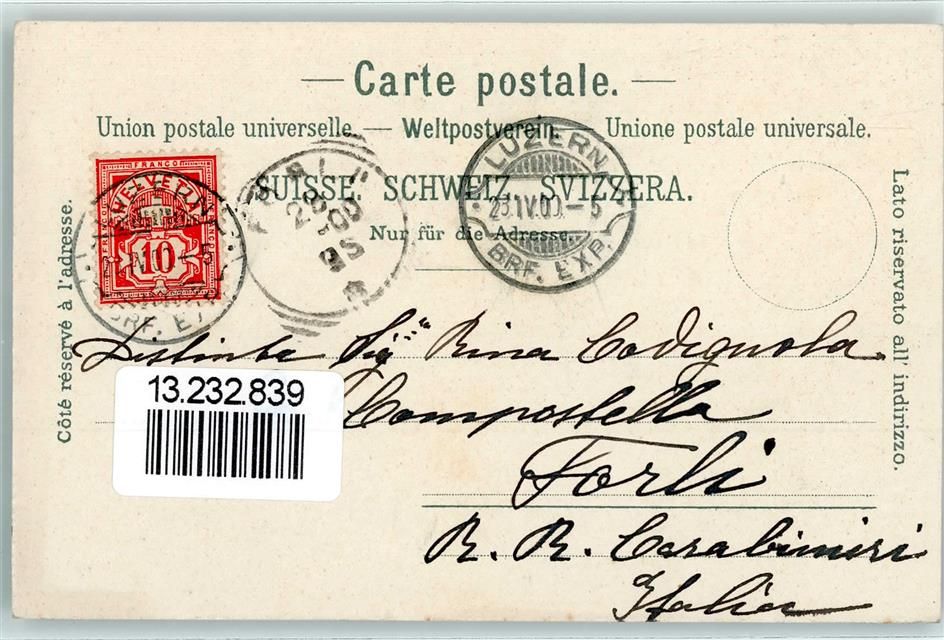 Carte postale.
Union postale universelle. — Weltpostverein. Unione postale universale.
SUISSE. SCHWEIZ. SVIZZERA.
Nur für die Adresse.
Côté réservé à l'adresse.
Lato riservato all' indirizzo.
FRANCO
HELVETIA
10
BRF. EXP.
LUZERN
BRF. EXP.
Distinta Sigⁿᵃ Rina Codignola
Compostella
Forlì
R. R. Carabinieri
Italia
13.232.839